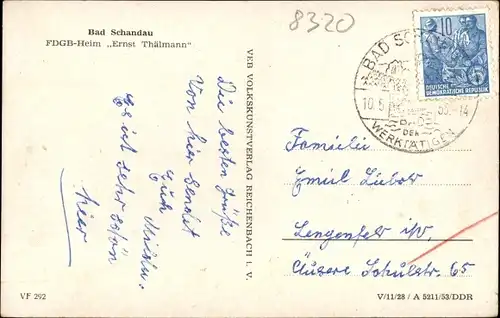 Bad Schandau
FDGB-Heim „Ernst Thälmann"
8320
Die besten Grüße
Von hier sendet
Euch
Es ist sehr schön
hier
VEB VOLKSKUNSTVERLAG REICHENBACH i. V.
10
DEUTSCHE
DEMOKRATISCHE REPUBLIK
BAD
10.6
-14
DER
WERKTÄTIGEN
Familie
Emil
Lengenfeld i/V.
Äußere Schulstr. 65
VF 292
V/11/28 / A 5211/53/DDR